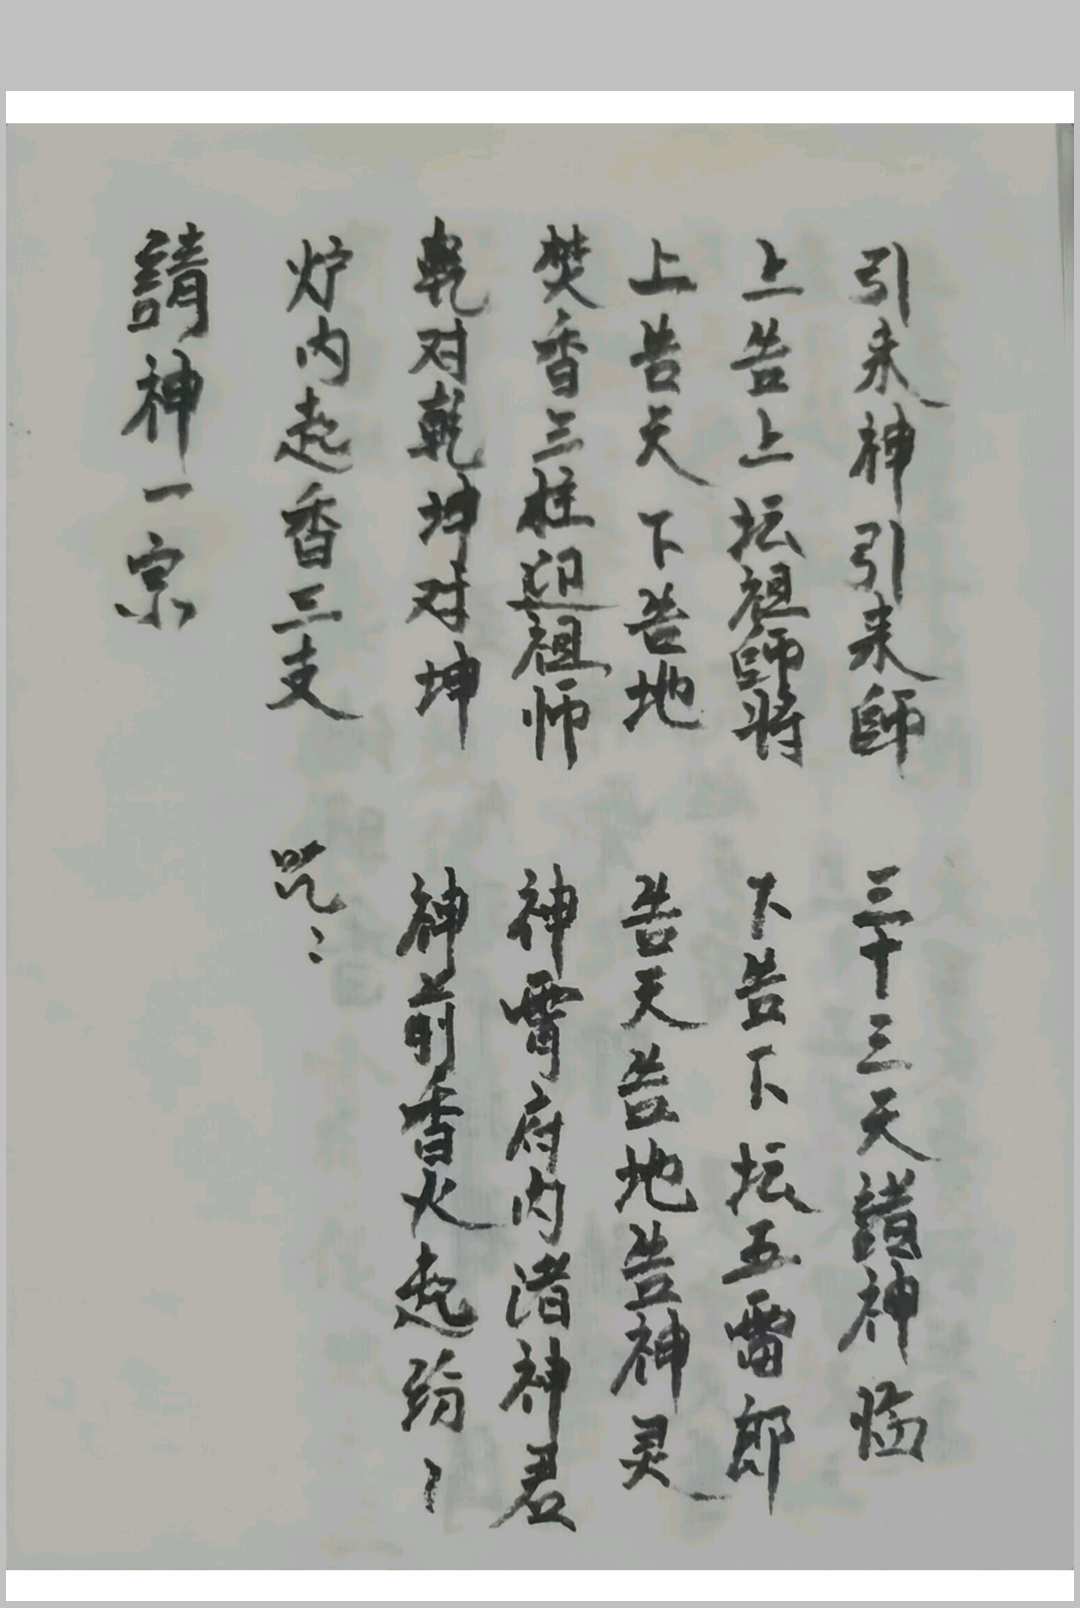 請神一宗
炉内起香三支 咒:
乾对乾坤对坤 神前香火起纷〻
焚香三柱迎祖师 神霄府内渚神君
上告天下告地 告天告地告神灵
上告上坛祖師将 下告下坛五雷郎
引来神引来師 三十三天諸神临